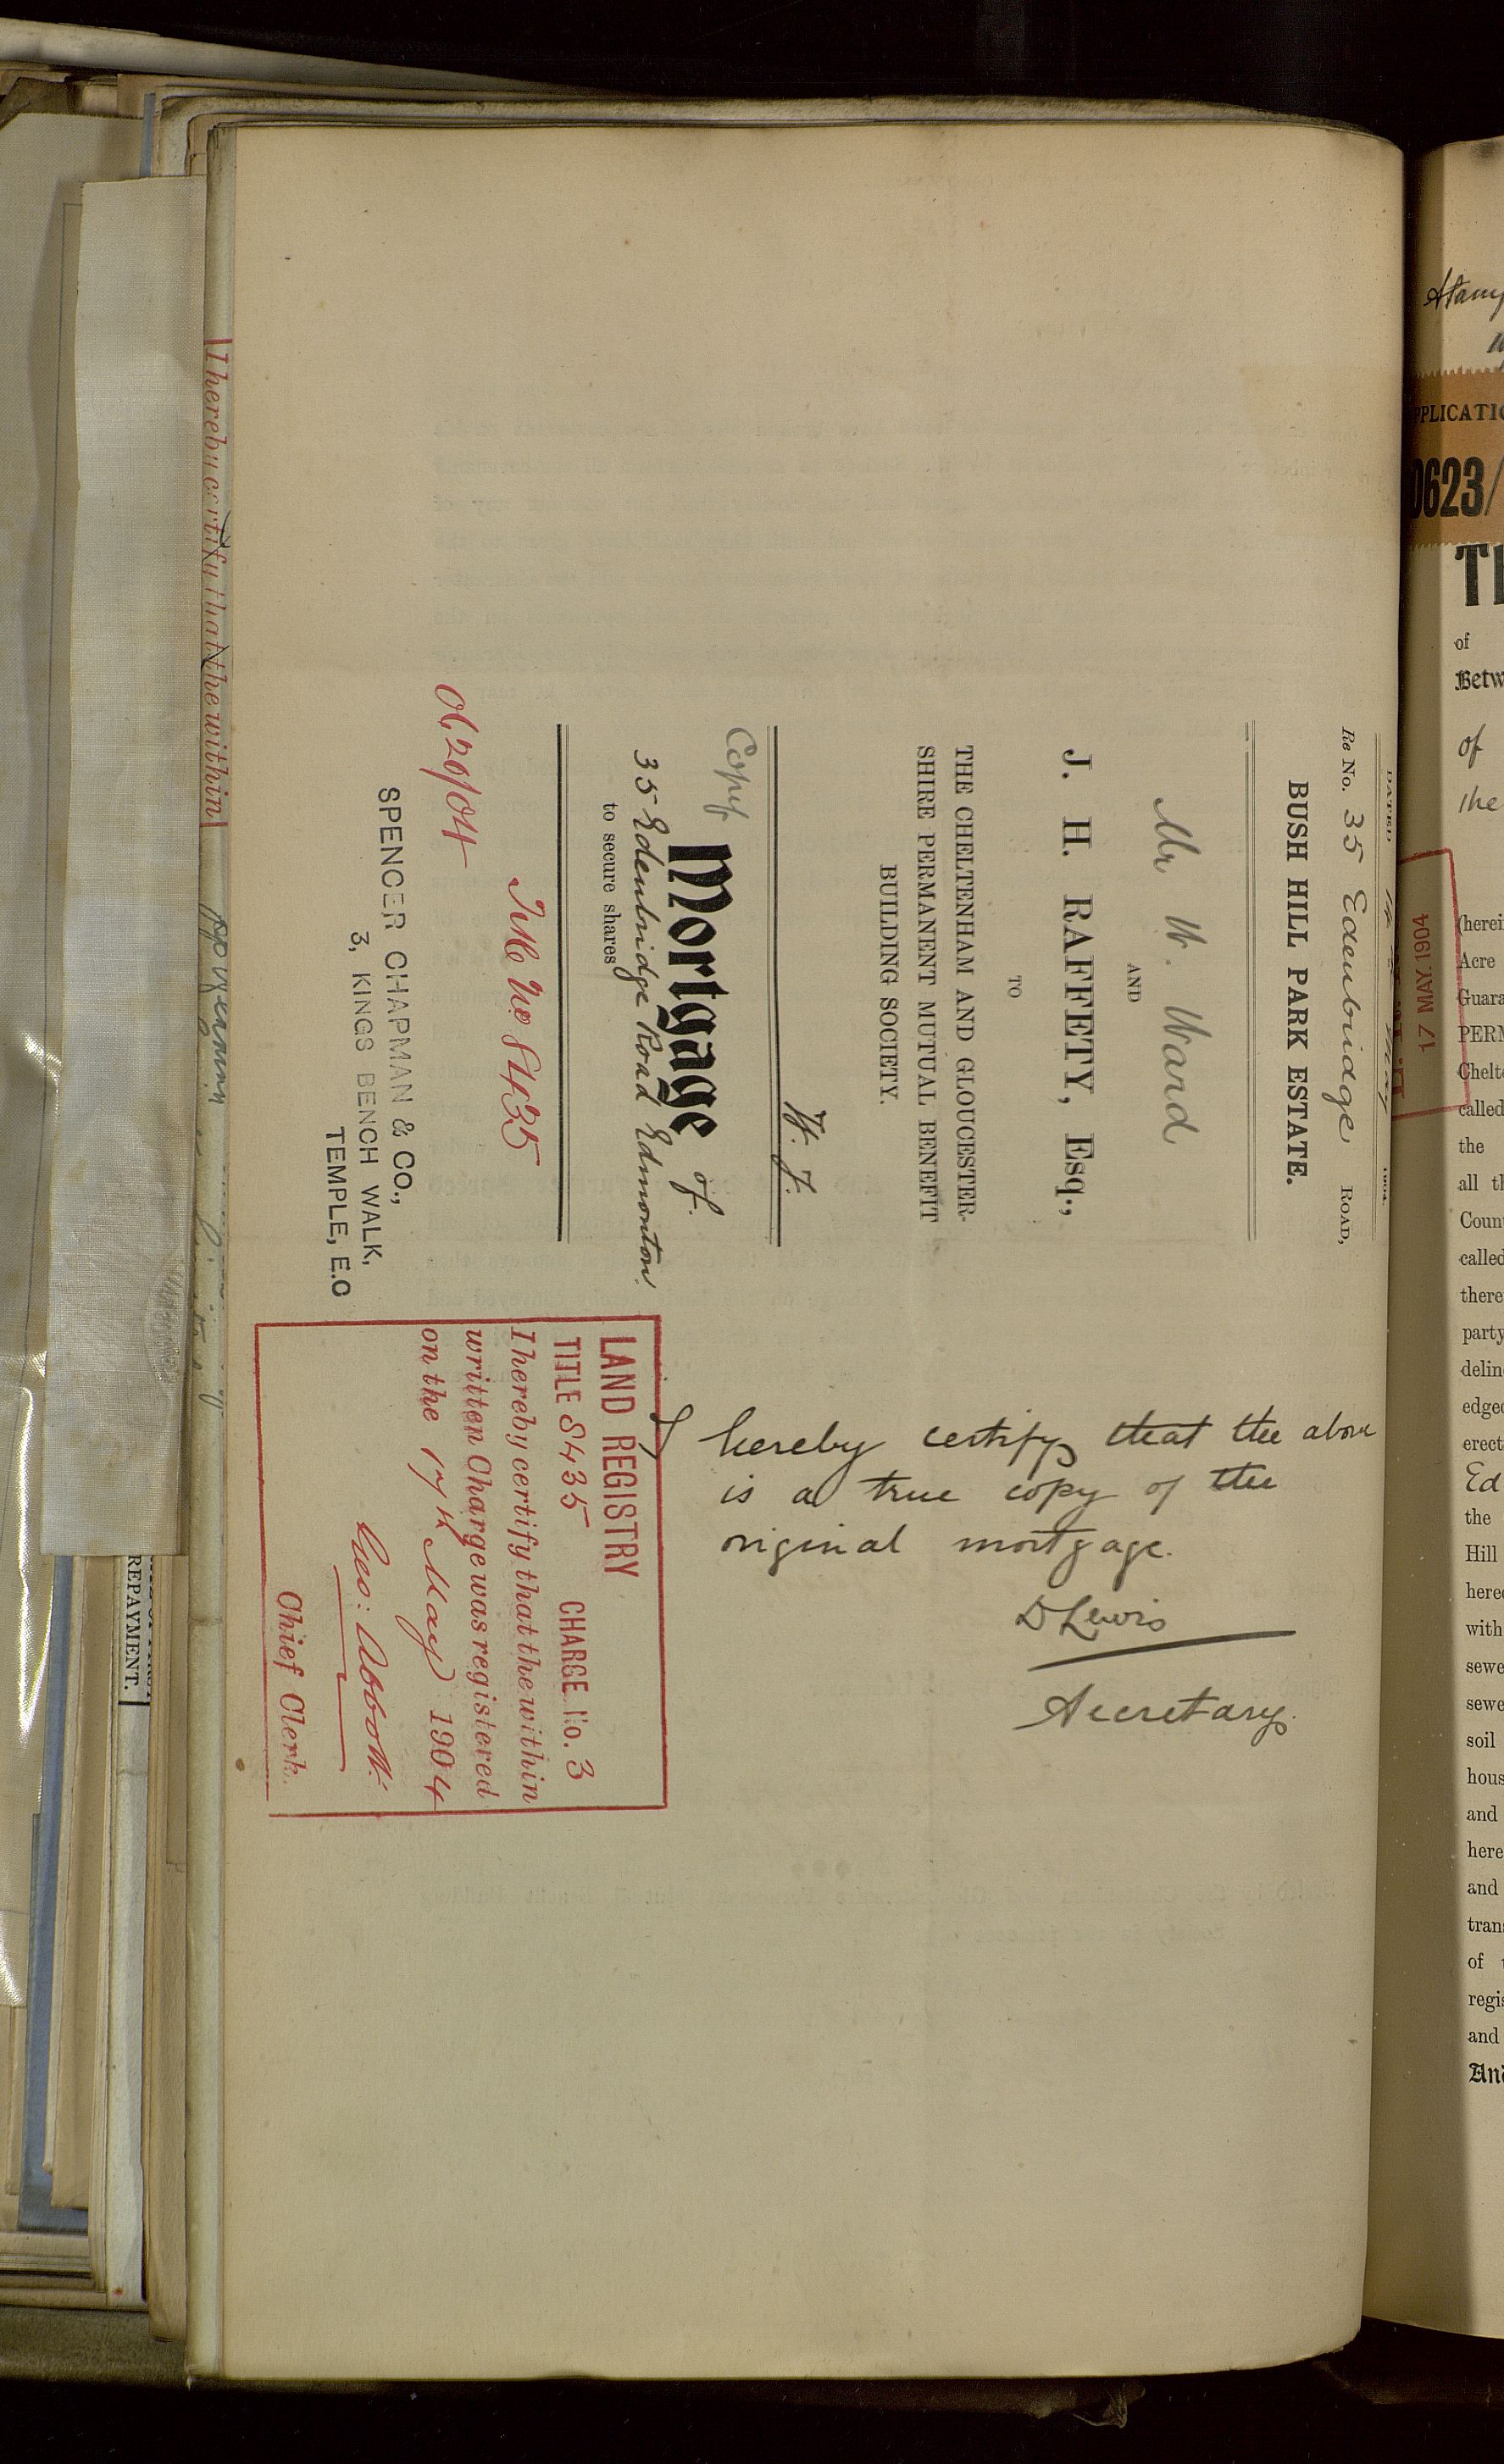 DATED 1904.
Re No. 35 Edenbridge ROAD,
BUSH HILL PARK ESTATE.
Mr W. Ward
AND
J. H. RAFFETY, Esq.,
TO
THE CHELTENHAM AND GLOUCESTER-
SHIRE PERMANENT MUTUAL BENEFIT
BUILDING SOCIETY.
Copy Mortgage of
35 Edenbridge Road Edmonton.
to secure shares
Title No 8435
0620/04
SPENCER CHAPMAN & CO.,
3, KINGS BENCH WALK,
TEMPLE, E.C
I hereby certify that the above
is a true copy of the
original mortgage.
D Lewis
Secretary.
LAND REGISTRY
TITLE 8435 CHARGE No. 3
I hereby certify that the within
written Charge was registered
on the 17th May 1904
Geo: Abbott.
Chief Clerk.
I hereby certify that the within
REPAYMENT.
17 MAY. 1904
0623/
of
Betw
of
the
(herei
Acre
Guara
PERM
Chelte
called
the
all th
Coun
called
there
party
delin
edged
erect
Ed
the
Hill
here
with
sewe
sewe
soil
hous
and
here
and
trans
of t
regis
and
And